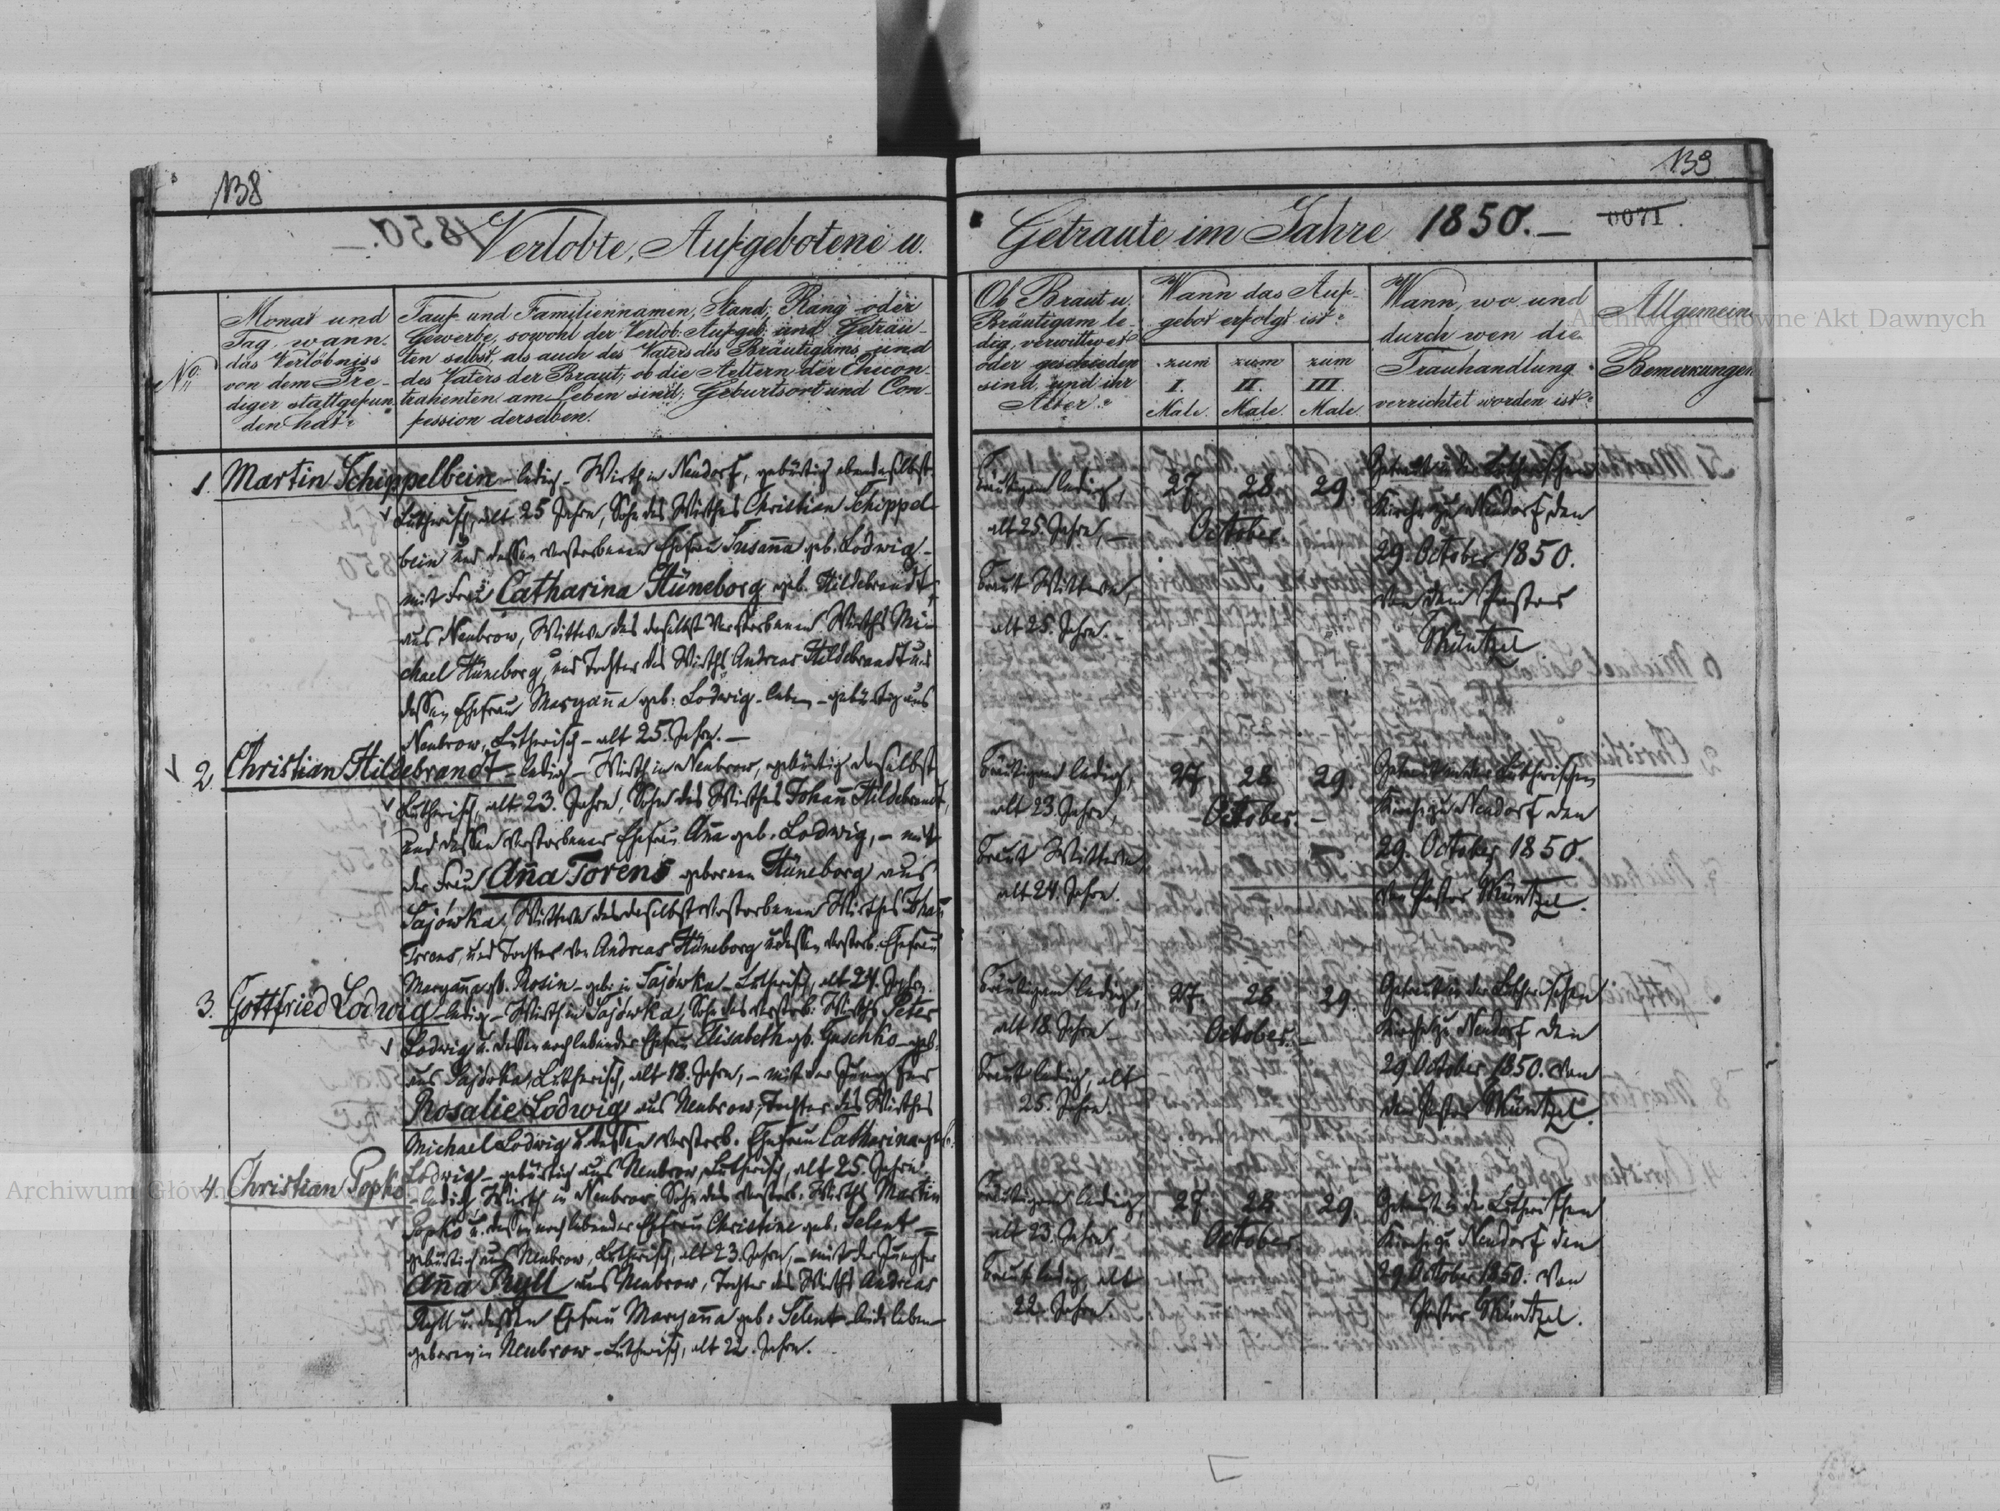 138
139
Verlobte, Aufgebotene u.
Getraute im Jahre 1850.
0071
No
Monat und
Tag, wann
das Verlöbniss
von dem Pre-
diger stattgefun
den hat?
Tauf und Familiennamen, Stand, Rang oder
Gewerbe, sowohl der Verlob. Aufgeb. und Getrau-
ten selbst, als auch des Vaters des Bräutigams und
des Vaters der Braut, ob die Aeltern der Checon-
trahenten am Leben sind; Geburtsort und Con-
fession derselben.
Ob Braut u.
Bräutigam le-
dig, verwittwet
oder geschieden
sind, und ihr
Alter?
Wann das Auf-
gebot erfolgt ist?
zum
I.
Male.
zum
II.
Male
zum
III.
Male
Wann, wo und
durch wen die
Trauhandlung
verrichtet worden ist?
Allgemein
Bemerkungen
Archiwum Główne Akt Dawnych
1. Martin Schippelbein - ledig - Wirth in Neudorf, gebürtig ebendaselbst
Lutherisch, alt 25 Jahre, Sohn des Wirthes Christian Schippel-
bein und dessen verstorbenen Ehefrau Susanna geb. Lodwig -
mit Frau Catharina Hüneborg geb. Hildebrandt,
aus Neubrow, Wittwe des daselbst verstorbenen Wirths Mi-
chael Hüneborg, und Tochter des Wirths Andreas Hildebrandt und
dessen Ehefrau Maryanna geb. Lodwig - leben - gebürtig aus
Neubrow, Lutherisch - alt 25. Jahre. -
Bräutigam ledig,
alt 25. Jahre, -
Braut Wittwe,
alt 25. Jahre. -
27. 28. 29.
October.
Getraut in der Lutherischen
Kirche zu Neudorf, den
29. October 1850.
von dem Pastor
Müntzel
2. Christian Hildebrandt - ledig - Wirth in Neubrow, gebürtig daselbst
Lutherisch, alt 23. Jahre, Sohn des Wirthes Johann Hildebrandt,
und dessen verstorbener Ehefrau Anna geb. Lodwig, - mit
der Frau Anna Torens geborenen Hüneborg aus
Sajówka, Wittwe des daselbst verstorbenen Wirthes Johann
Torens, und Tochter von Andreas Hüneborg u dessen verstorb. Ehefrau
Maryanna geb. Rosin - geb. in Sajówka - Lutherisch, alt 24. Jahre.
Bräutigam ledig,
alt 23. Jahre,
Braut Wittwe,
alt 24 Jahre.
27. 28. 29.
October. -
Getraut in der Lutherischen
Kirche zu Neudorf den
29. October 1850.
von Pastor Müntzel.
3. Gottfried Lodwig - ledig - Wirth in Sajówka, Sohn des verstorb. Wirths Peter
Lodwig u. dessen noch lebender Ehefrau Elisabeth geb. Guschko - geb.
aus Sajówka, Lutherisch, alt 18. Jahre, - mit der Jungfer
Rosalie Lodwig aus Neubrow, Tochter des Wirthes
Michael Lodwig u. dessen verstorb. Ehefrau Catharina geb.
Lodwig - gebürtig aus Neubrow, Lutherisch, alt 25. Jahre.
Bräutigam ledig,
alt 18. Jahre -
Braut ledig, alt
25. Jahre.
27. 28. 29.
October. -
Getraut in der Lutherischen
Kirche zu Neudorf den
29. October 1850. von
dem Pastor Müntzel.
Archiwum Główne
4. Christian Popko - ledig, Wirth in Neubrow, Sohn des verstorb. Wirths Martin
Popko u. dessen noch lebender Ehefrau Christine geb. Selent -
gebürtig aus Neubrow, Lutherisch, alt 23. Jahre, - mit der Jungfer
Anna Ryll aus Neubrow, Tochter des Wirths Andreas
Ryll u. dessen Ehefrau Maryanna geb. Selent beide leben -
geboren in Neubrow - Lutherisch, alt 22. Jahre.
Bräutigam ledig,
alt 23. Jahre,
Braut ledig, alt
22. Jahre.
27. 28. 29.
October
Getraut in der Lutherischen
Kirche zu Neudorf den
29. October 1850. von
Pastor Müntzel.